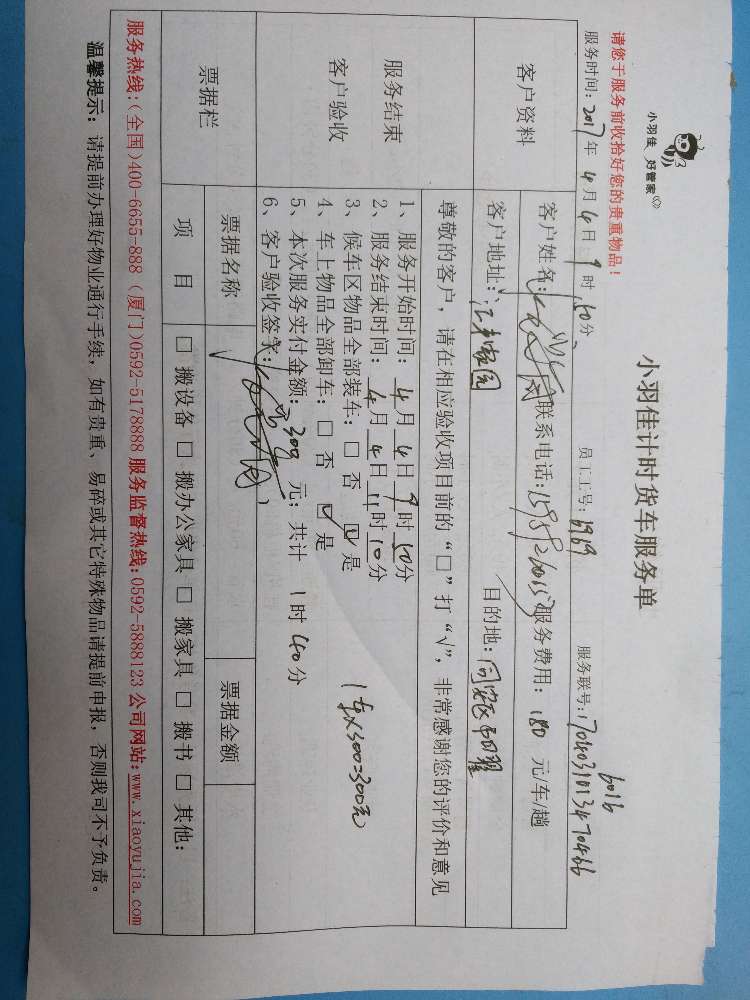 小羽佳 好管家
小羽佳计时货车服务单
请您于服务前收拾好您的贵重物品！
6016
服务时间：2017年4月4日9时 分 员工工号：6969 服务联号：1704031013470466
客户资料
客户姓名： 联系电话： 服务费用：180元/车/趟
客户地址： 目的地：
服务结束
客户验收
尊敬的客户，请在相应验收项目前的“□”打“√”，非常感谢您的评价和意见
1、服务开始时间：4月4日9时 分
2、服务结束时间：4月4日11时10分
3、候车区物品全部装车：□ 否 ☑ 是
4、车上物品全部卸车：□ 否 ☑ 是
5、本次服务实付金额：300元；共计 1时40分
1车×300=300元
6、客户验收签字：
票据栏
票据名称 票据金额
项 目 □ 搬设备 □ 搬办公家具 □ 搬家具 □ 搬书 □ 其他：
服务热线：(全国)400-6655-888 (厦门)0592-5178888 服务监督热线：0592-5888123 公司网站：www.xiaoyujia.com
温馨提示：请提前办理好物业通行手续，如有贵重、易碎或其它特殊物品请提前申报，否则我司不予负责。